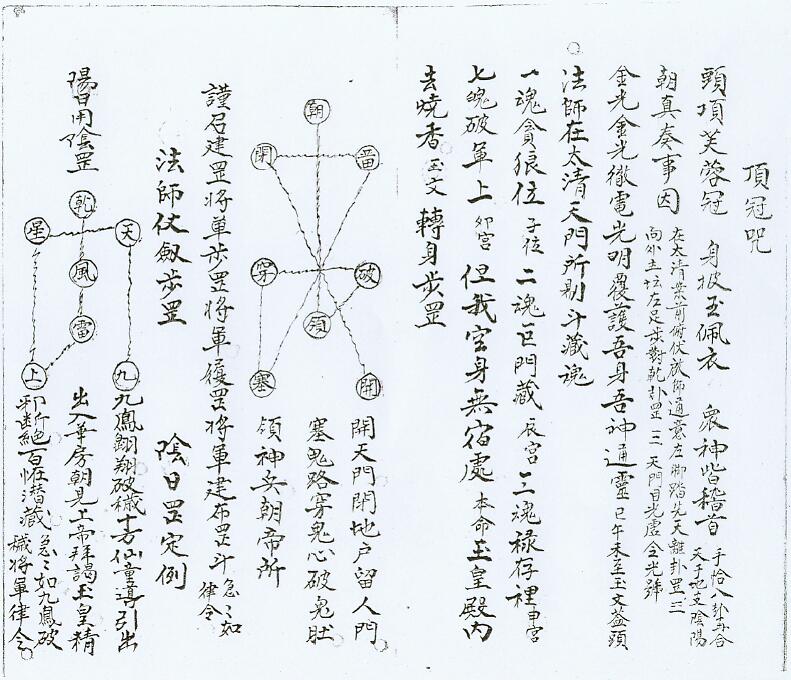 頂冠咒
頭頂芙蓉冠 身披玉佩衣 眾神皆稽首 手恰八卦為合
天干地支陰陽
朝真奏事因 在太清業前俯伏啟師通意左脚踏先天離卦罡三
向外主坛左足步對乾卦罡三 天門目光處金光號
金光金光徹電光明覆護吾身吾神通靈 巳午未至玉文蓋頭
法師在太清天門所剔斗藏魂
一魂貪狼位 子位 二魂巨門藏 辰宮 三魂祿存裡 申宮
七魄破軍上 卯宮 但我空身無宿處 本命 玉皇殿內
去燒香 玉文 轉身步罡
朝
閉 留
穿 破
領
塞 開
開天門閉地户留人門
塞鬼路穿鬼心破鬼肚
領神兵朝帝所
謹召建罡將軍步罡將軍履罡將軍建布罡斗 急々如
律令
法師仗劍步罡 陰日罡定例
陽日用陰罡
乾
星 天
風
雷
上 九
九鳳翺翔破穢十方仙童導引出
出入華房朝見上帝拜謁玉皇精
邪断絕百怪潜藏 急々如九鳳破
穢將軍律令